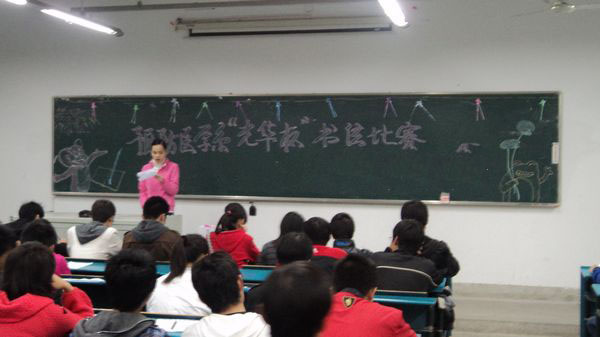 预防医学系"光华杯"书法比赛